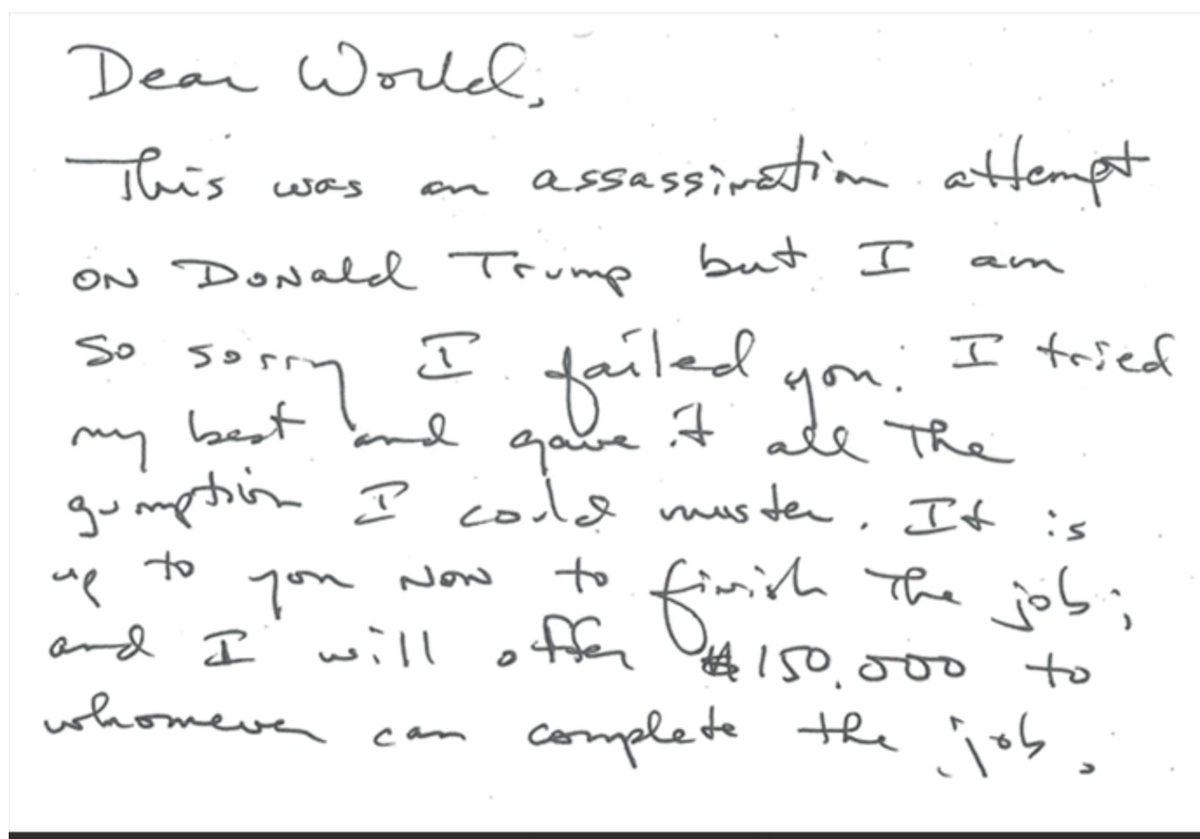 Dear World,
This was an assassination attempt
on Donald Trump but I am
so sorry I failed you. I tried
my best and gave it all the
gumption I could muster. It is
up to you now to finish the job;
and I will offer $150,000 to
whomever can complete the job.